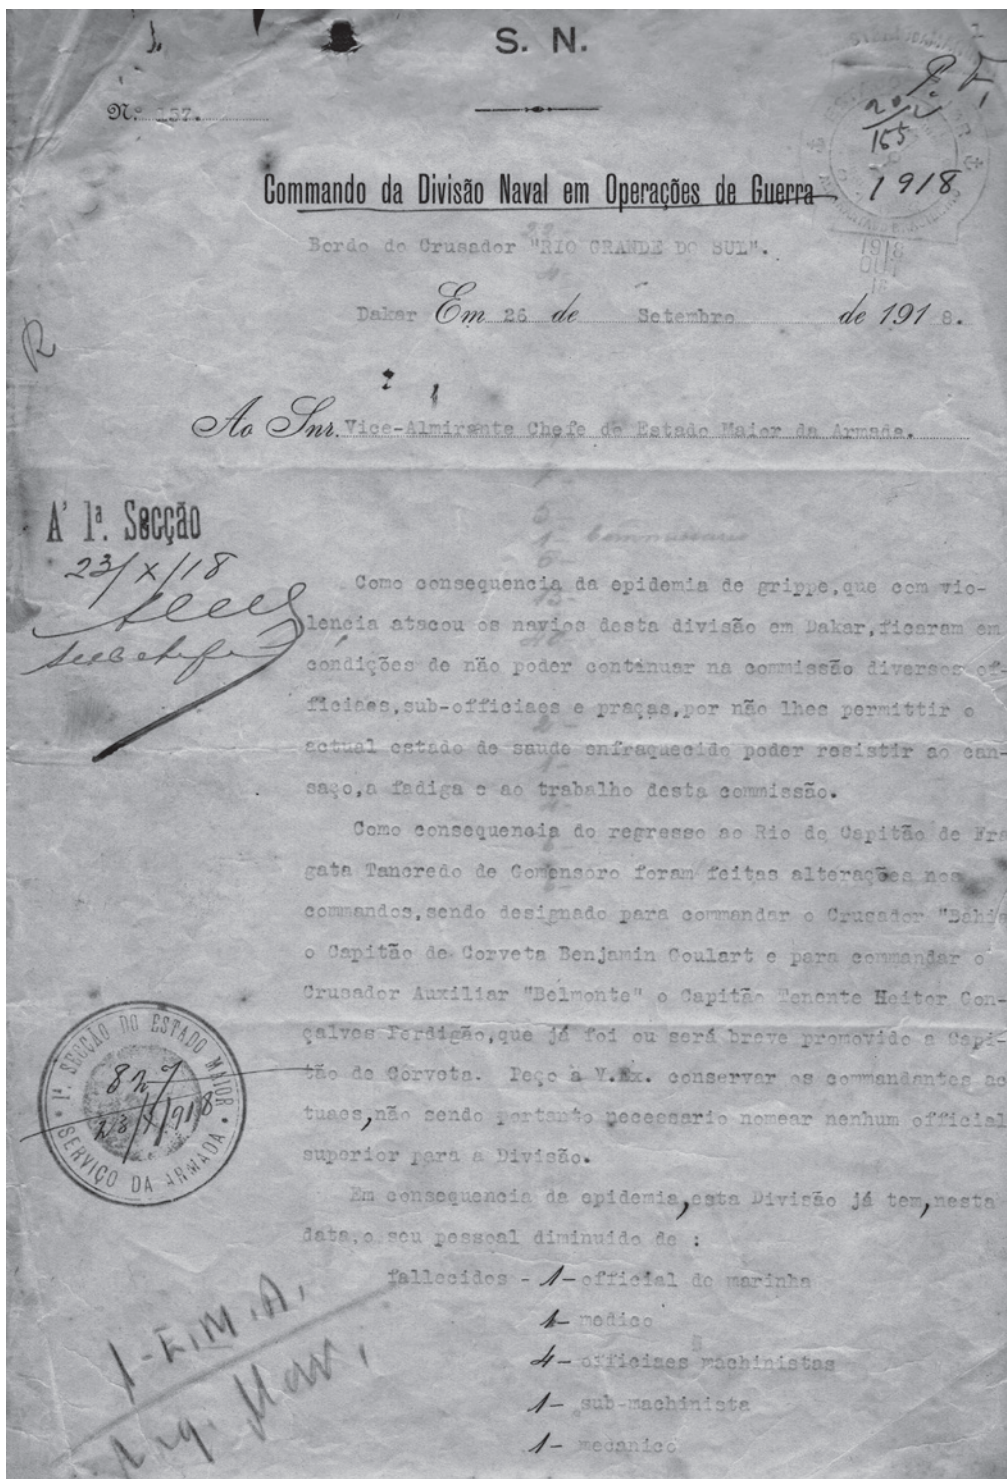 S. N.
Nº 257.
20/2
155
1918
Commando da Divisão Naval em Operações de Guerra
Bordo do Crusador "RIO GRANDE DO SUL".
Dakar Em 26 de Setembro de 1918.
R
Ao Snr. Vice-Almirante Chefe do Estado Maior da Armada.
A' 1ª. Secção
23/X/18
Sub chefe
Como consequencia da epidemia de grippe, que com vio-
lencia atacou os navios desta divisão em Dakar, ficaram em
condições de não poder continuar na commissão diversos of-
ficiaes, sub-officiaes e praças, por não lhes permittir o
actual estado de saude enfraquecido poder resistir ao can-
saço, a fadiga e ao trabalho desta commissão.
Como consequencia do regresso ao Rio do Capitão de Fra
gata Tancredo de Gomensoro foram feitas alterações nos
commandos, sendo designado para commandar o Crusador "Bahia
o Capitão de Corveta Benjamin Goulart e para commandar o
Crusador Auxiliar "Belmonte" o Capitão Tenente Heitor Gon-
çalves Perdigão, que já foi ou será breve promovido a Capi-
tão de Corveta. Peço à V.Ex. conservar os commandantes ac
tuaes, não sendo portanto necessario nomear nenhum official
superior para a Divisão.
Em consequencia da epidemia, esta Divisão já tem, nesta
data, o seu pessoal diminuido de :
fallecidos - 1- official de marinha
1- medico
4- officiaes machinistas
1- sub-machinista
1- mecanico
1ª. SECÇÃO DO ESTADO MAIOR
827
23/X/918
SERVIÇO DA ARMADA
1-E.M.A.